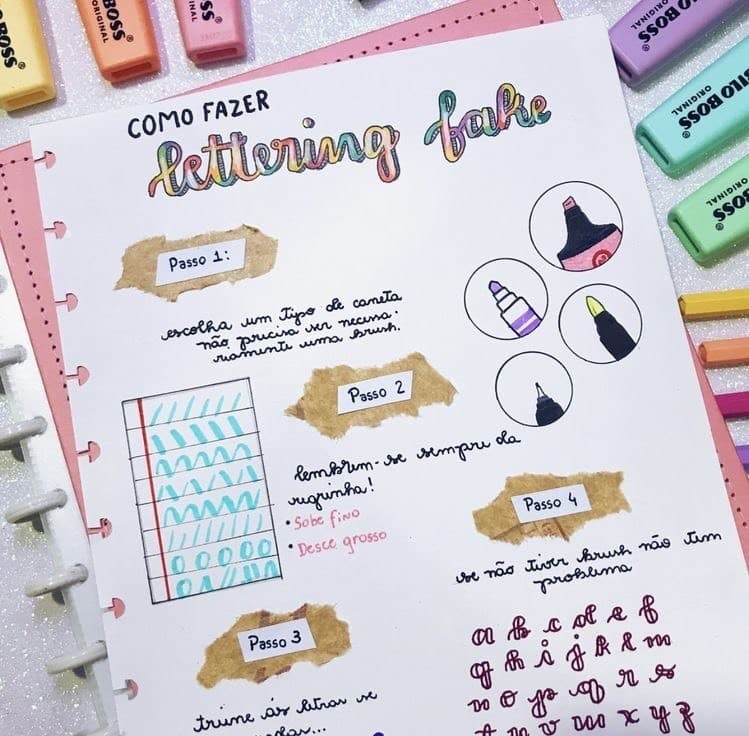 COMO FAZER
lettering fake
Passo 1:
escolha um tipo de caneta
não precisa ser necessa-
riamente uma brush.
Passo 2
lembrem-se sempre da
regrinha!
• Sobe fino
• Desce grosso
Passo 3
treine as letras se
Passo 4
se não tiver brush não tem
problema
a b c d e f
g h i j k l m
n o p q r s
t u v w x y z
BOSS
ORIGINAL
BOSS
ORIGINAL
BOSS
ORIGINAL
BOSS
ORIGINAL
ILO BOSS
ORIGINAL
ILO BOSS
ORIGINAL